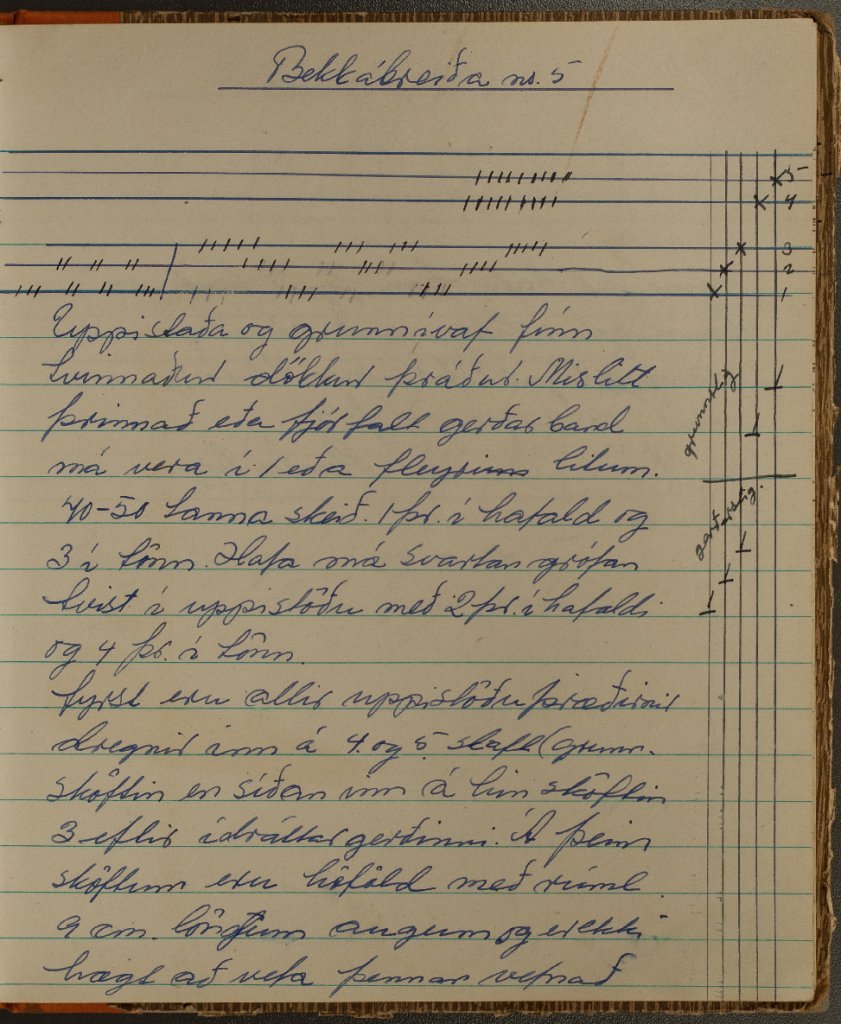 Bekkábreiða nr. 5
5
4
3
2
1
grunnstig
gerðarstig.
Uppistaða og grunnívaf fínn
tvinnaður dökkur þráður. Mislitt
þrinnað eða fjórfalt gerðarband
má vera í 1 eða fleyrum litum.
40-50 tanna skeið. 1 þr. í hafald og
3 í tönn. Hafa má svartan grófan
tvist í uppistöðu með 2 þr. í hafaldi
og 4 þr. í tönn.
fyrst eru allir uppistöðuþræðirnir
dregnir inn á 4. og 5. skaft (grunn.
sköftin en síðan inn á hin sköftin
3 eftir ídráttargerðinni. Á þeim
sköftum eru höföld með rúml.
9 cm. löngum augum og er ekki
hægt að vefa þennan vefnað